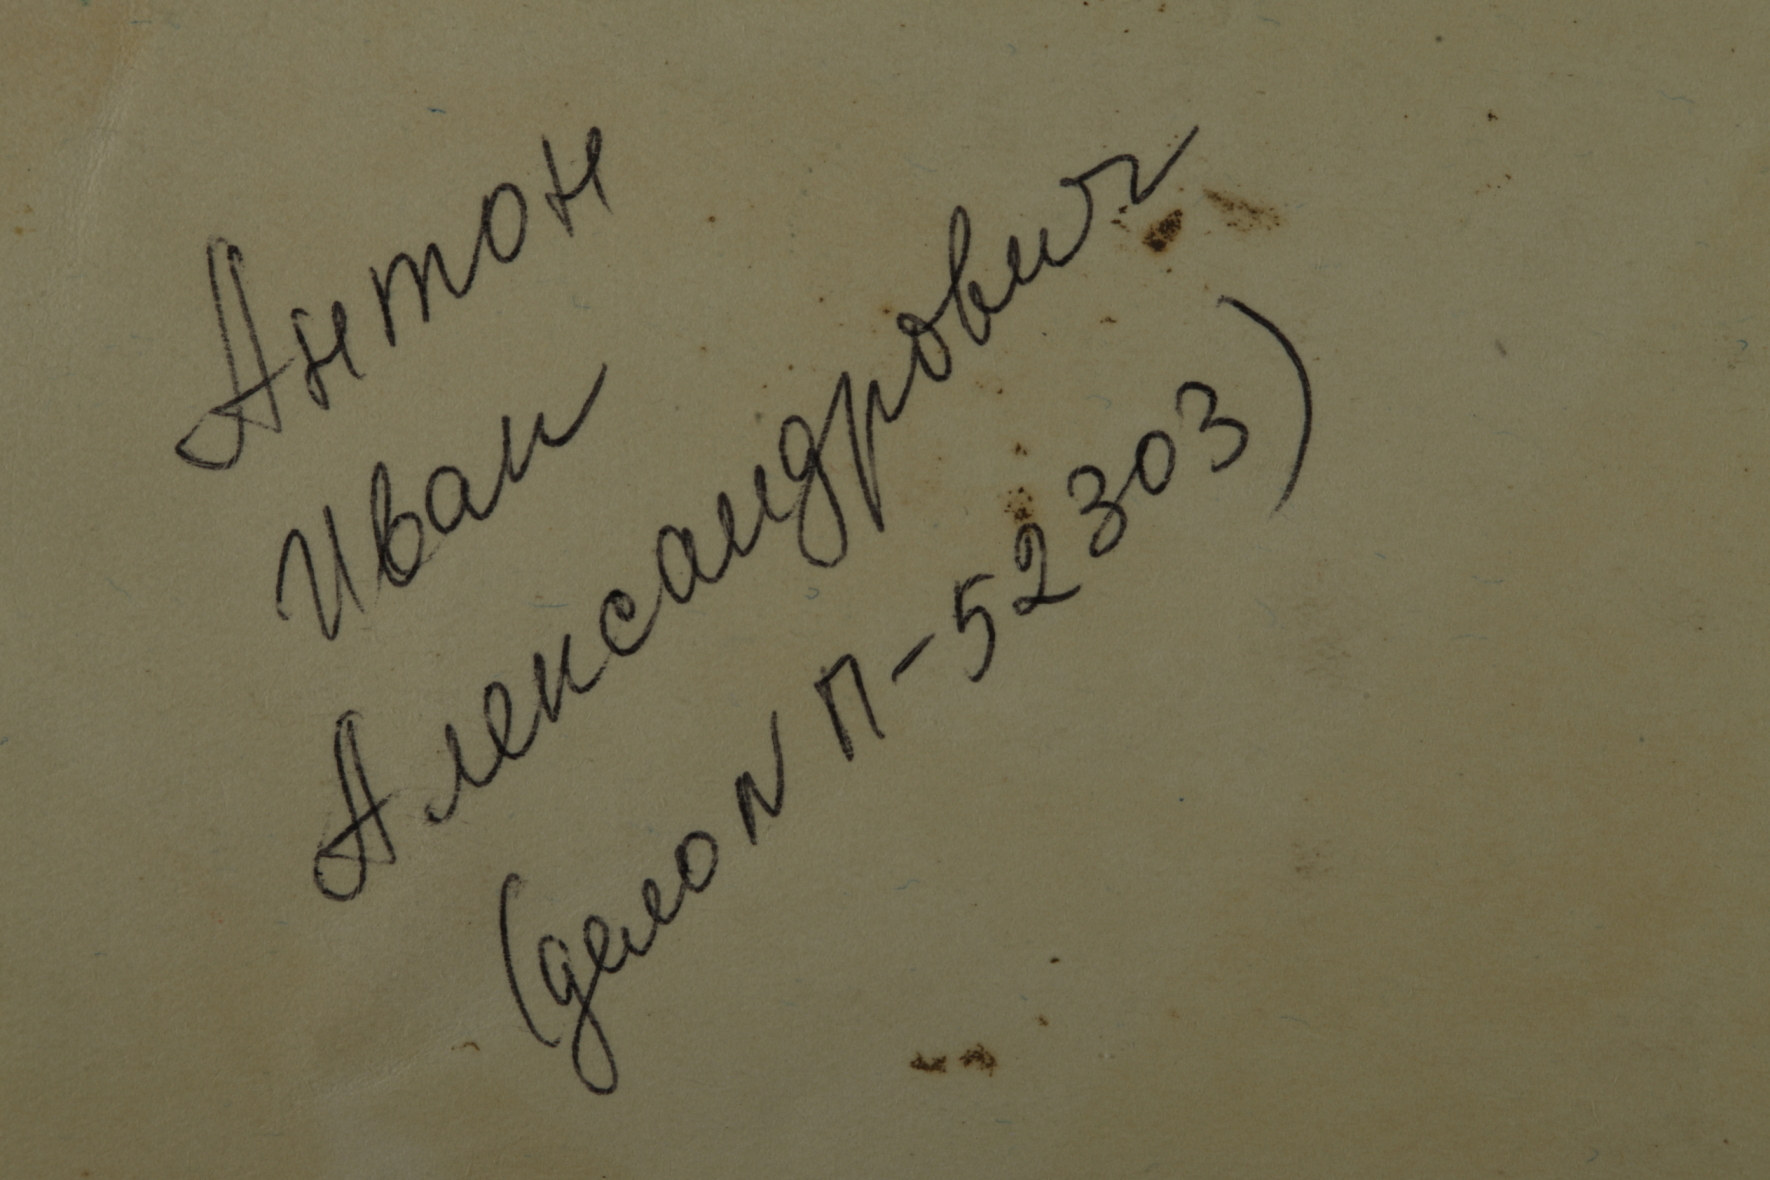 Антон
Иван
Александрович
(дело N П-52303)